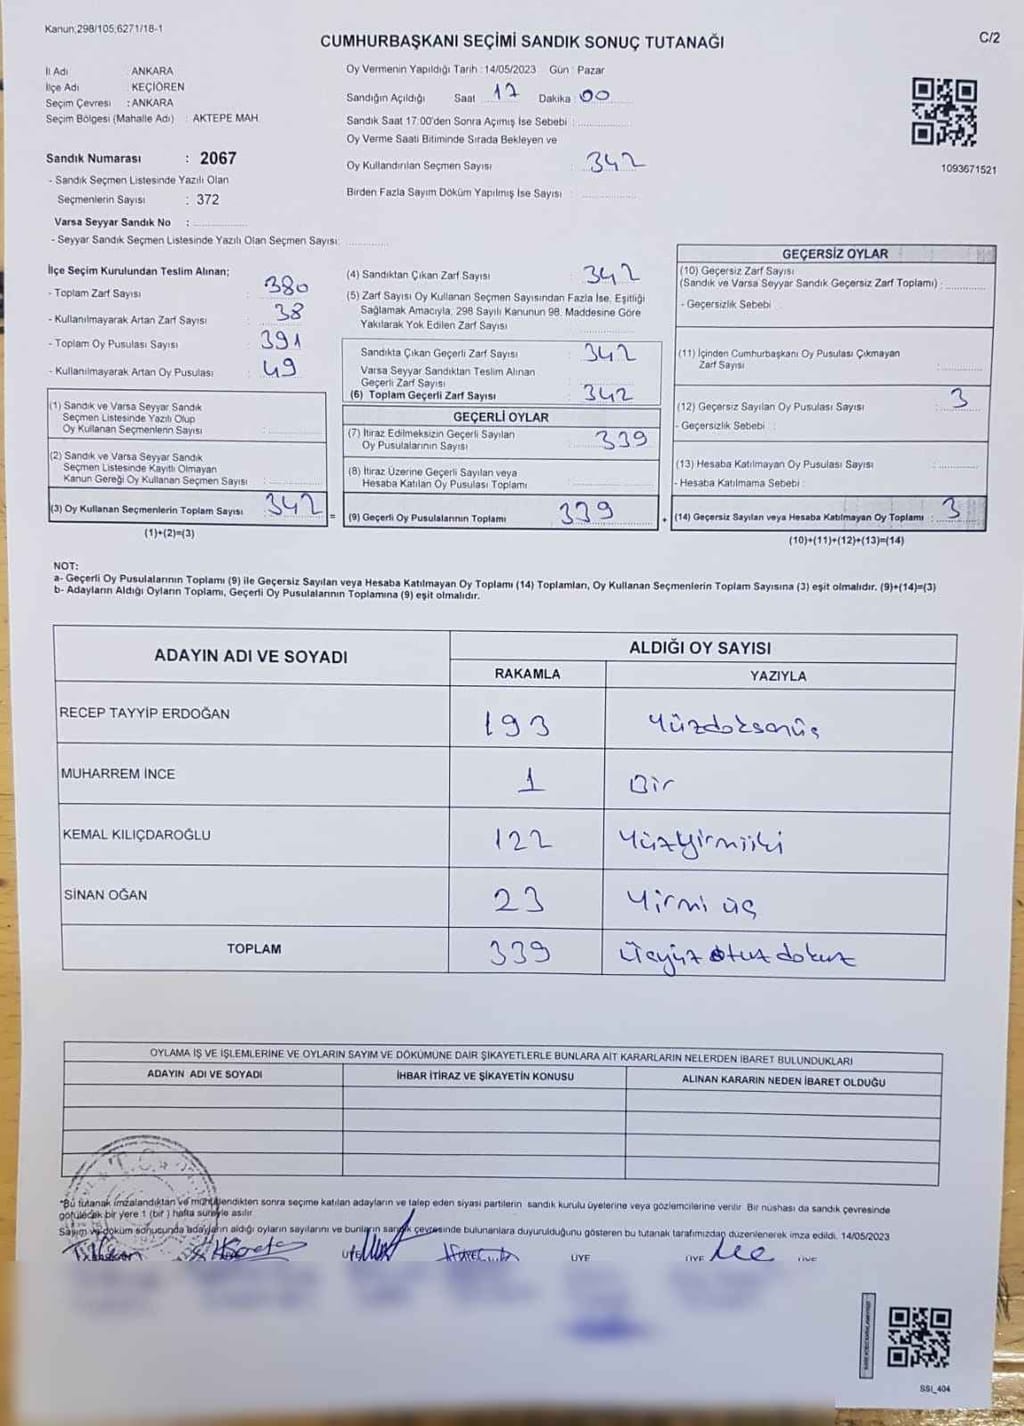 Kanun;298/105,6271/18-1
CUMHURBAŞKANI SEÇİMİ SANDIK SONUÇ TUTANAĞI
C/2
İl Adı ANKARA
İlçe Adı : KEÇİÖREN
Seçim Çevresi : ANKARA
Seçim Bölgesi (Mahalle Adı) : AKTEPE MAH.
Sandık Numarası : 2067
- Sandık Seçmen Listesinde Yazılı Olan
Seçmenlerin Sayısı : 372
Varsa Seyyar Sandık No :
- Seyyar Sandık Seçmen Listesinde Yazılı Olan Seçmen Sayısı:
Oy Vermenin Yapıldığı Tarih : 14/05/2023 Gün : Pazar
Sandığın Açıldığı Saat 17 Dakika : 00
Sandık Saat 17:00'den Sonra Açımış İse Sebebi :
Oy Verme Saati Bitiminde Sırada Bekleyen ve
Oy Kullandırılan Seçmen Sayısı : 342
Birden Fazla Sayım Döküm Yapılmış İse Sayısı :
1093671521
İlçe Seçim Kurulundan Teslim Alınan;
- Toplam Zarf Sayısı : 380
- Kullanılmayarak Artan Zarf Sayısı : 38
- Toplam Oy Pusulası Sayısı : 391
- Kullanılmayarak Artan Oy Pusulası : 49
(1) Sandık ve Varsa Seyyar Sandık
Seçmen Listesinde Yazılı Olup
Oy Kullanan Seçmenlerin Sayısı :
(2) Sandık ve Varsa Seyyar Sandık
Seçmen Listesinde Kayıtlı Olmayan
Kanun Gereği Oy Kullanan Seçmen Sayısı :
(3) Oy Kullanan Seçmenlerin Toplam Sayısı : 342
(1)+(2)=(3)
(4) Sandıktan Çıkan Zarf Sayısı : 342
(5) Zarf Sayısı Oy Kullanan Seçmen Sayısından Fazla İse, Eşitliği
Sağlamak Amacıyla, 298 Sayılı Kanunun 98. Maddesine Göre
Yakılarak Yok Edilen Zarf Sayısı :
Sandıkta Çıkan Geçerli Zarf Sayısı : 342
Varsa Seyyar Sandıktan Teslim Alınan
Geçerli Zarf Sayısı :
(6) Toplam Geçerli Zarf Sayısı : 342
GEÇERLİ OYLAR
(7) İtiraz Edilmeksizin Geçerli Sayılan
Oy Pusulalarının Sayısı : 339
(8) İtiraz Üzerine Geçerli Sayılan veya
Hesaba Katılan Oy Pusulası Toplamı :
= (9) Geçerli Oy Pusulalarının Toplamı : 339
GEÇERSİZ OYLAR
(10) Geçersiz Zarf Sayısı
(Sandık ve Varsa Seyyar Sandık Geçersiz Zarf Toplamı) :
- Geçersizlik Sebebi :
(11) İçinden Cumhurbaşkanı Oy Pusulası Çıkmayan
Zarf Sayısı :
(12) Geçersiz Sayılan Oy Pusulası Sayısı : 3
- Geçersizlik Sebebi :
(13) Hesaba Katılmayan Oy Pusulası Sayısı :
- Hesaba Katılmama Sebebi :
+ (14) Geçersiz Sayılan veya Hesaba Katılmayan Oy Toplamı : 3
(10)+(11)+(12)+(13)=(14)
NOT:
a- Geçerli Oy Pusulalarının Toplamı (9) ile Geçersiz Sayılan veya Hesaba Katılmayan Oy Toplamı (14) Toplamları, Oy Kullanan Seçmenlerin Toplam Sayısına (3) eşit olmalıdır. (9)+(14)=(3)
b- Adayların Aldığı Oyların Toplamı, Geçerli Oy Pusulalarının Toplamına (9) eşit olmalıdır.
ADAYIN ADI VE SOYADI
ALDIĞI OY SAYISI
RAKAMLA YAZIYLA
RECEP TAYYİP ERDOĞAN 193 Yüzdoksanüç
MUHARREM İNCE 1 Bir
KEMAL KILIÇDAROĞLU 122 Yüzyirmiiki
SİNAN OĞAN 23 Yirmi üç
TOPLAM 339 Üçyüz otuz dokuz
OYLAMA İŞ VE İŞLEMLERİNE VE OYLARIN SAYIM VE DÖKÜMÜNE DAİR ŞİKAYETLERLE BUNLARA AİT KARARLARIN NELERDEN İBARET BULUNDUKLARI
ADAYIN ADI VE SOYADI İHBAR İTİRAZ VE ŞİKAYETİN KONUSU ALINAN KARARIN NEDEN İBARET OLDUĞU
T.C.
*Bu tutanak imzalandıktan ve mühürlendikten sonra seçime katılan adayların ve talep eden siyasi partilerin sandık kurulu üyelerine veya gözlemcilerine verilir. Bir nüshası da sandık çevresinde
götülecek bir yere 1 (bir) hafta süreyle asılır.
Sayım ve döküm sonucunda adayların aldığı oyların sayılarını ve bunların sandık çevresinde bulunanlara duyurulduğunu gösteren bu tutanak tarafımızdan düzenlenerek imza edildi. 14/05/2023
ÜYE ÜYE ÜYE ÜYE
SSI_404